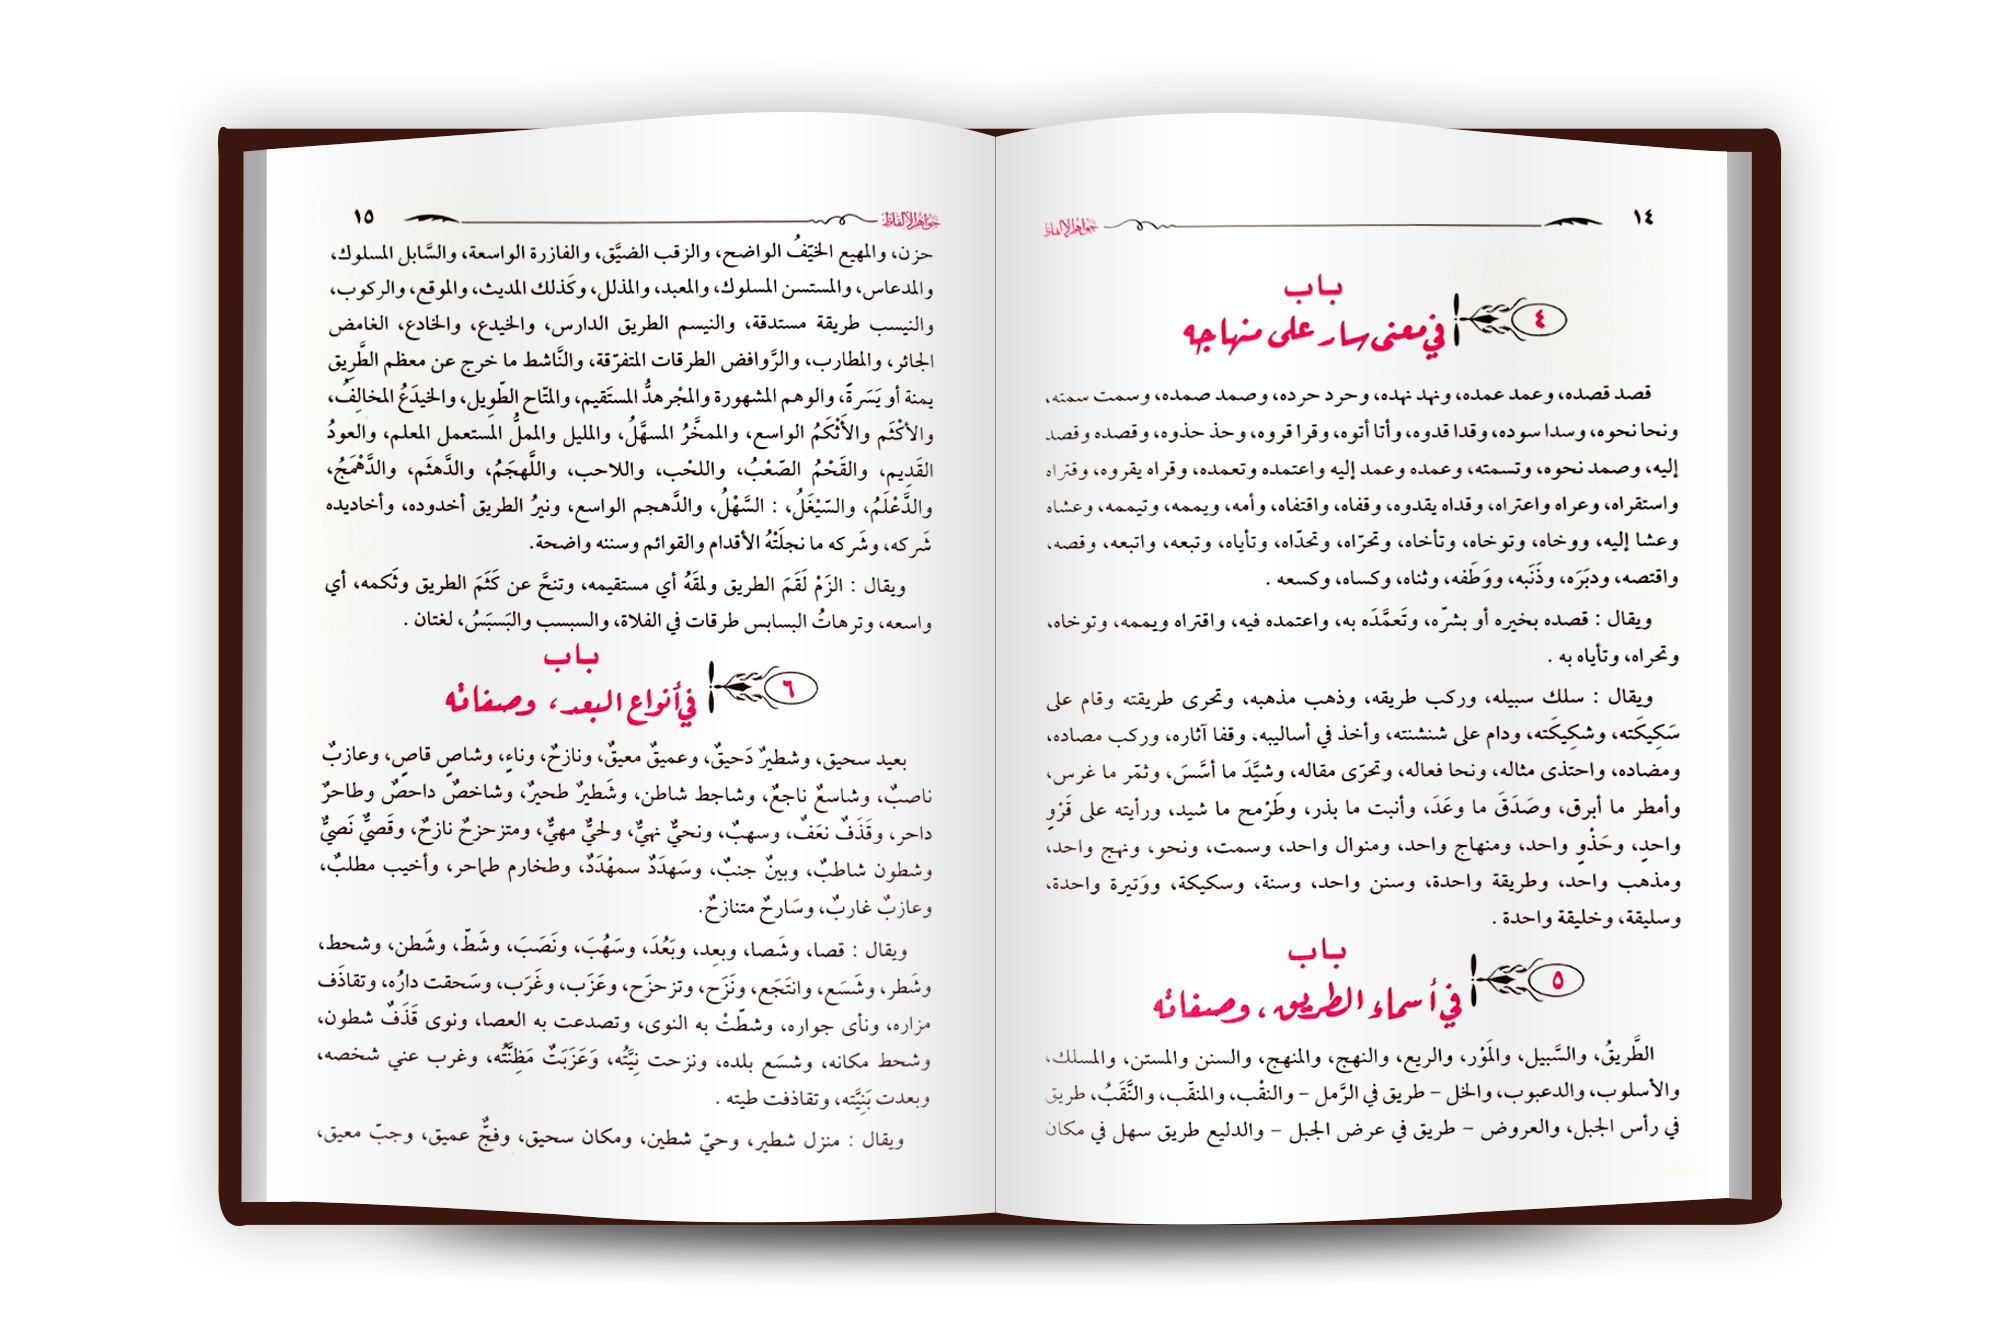 ١٤
جواهر الألفاظ
باب
٤
في معنى سار على منهاجه
قصد قصده، وعمد عمده، ونهد نهده، وحرد حرده، وصمد صمده، وسمت سمته،
ونحا نحوه، وسدا سوده، وقدا قدوه، وأتا أتوه، وقرا قروه، وحذ حذوه، وقصده وقصد
إليه، وصمد نحوه، وتسمته، وعمده وعمد إليه واعتمده وتعمده، وقراه يقروه، وقتراه
واستقراه، وعراه واعتراه، وقداه يقدوه، وقفاه، واقتفاه، وأمه، ويممه، وتيممه، وعشاه
وعشا إليه، ووخاه، وتوخاه، وتأخاه، وتحرّاه، وتحدّاه، وتأياه، وتبعه، واتبعه، وقصه،
واقتصه، ودبَرَه، وذَنَبه، ووَطَفه، وثناه، وكساه، وكسعه .
ويقال : قصده بخيره أو بشرّه، وتَعمَّدَه به، واعتمده فيه، واقتراه ويممه، وتوخاه،
وتحراه، وتأياه به .
ويقال : سلك سبيله، وركب طريقه، وذهب مذهبه، وتحرى طريقته وقام على
سَكِيكَته، وشكِيكَته، ودام على شنشنته، وأخذ في أساليبه، وقفا آثاره، وركب مصاده،
ومضاده، واحتذى مثاله، ونحا فعاله، وتحرّى مقاله، وشيَّدَ ما أسَّسَ، وثمّر ما غرس،
وأمطر ما أبرق، وصَدَقَ ما وعَدَ، وأنبت ما بذر، وطَرْمح ما شيد، ورأيته على قَرْوٍ
واحدٍ، وحَذْوٍ واحد، ومنهاج واحد، ومنوال واحد، وسمت، ونحو، ونهج واحد،
ومذهب واحد، وطريقة واحدة، وسنن واحد، وسنة، وسكيكة، ووَتيرة واحدة،
وسليقة، وخليقة واحدة .
باب
٥
في أسماء الطريق، وصفاته
الطَّريقُ، والسَّبيل، والمَوْر، والريع، والنهج، والمنهج، والسنن والمستن، والمسلك،
والأسلوب، والدعبوب، والخل – طريق في الرَّمل – والنقْب، والمنقّب، والنَّقَبُ، طريق
في رأس الجبل، والعروض – طريق في عرض الجبل – والدليع طريق سهل في مكان
جواهر الألفاظ
١٥
حزن، والمهيع الخيّفُ الواضح، والزقب الضيَّق، والفازرة الواسعة، والسَّابل المسلوك،
والمدعاس، والمستسن المسلوك، والمعبد، والمذلل، وكَذلك المديث، والموقع، والركوب،
والنيسب طريقة مستدقة، والنيسم الطريق الدارس، والخيدع، والخادع، الغامض
الجائر، والمطارب، والرَّوافض الطرقات المتفرّقة، والنَّاشط ما خرج عن معظم الطَّرِيق
يمنة أو يَسَرةً، والوهم المشهورة والمجْرهدُّ المستَقيم، والمتّاح الطّوِيل، والخيدَعُ المخالِفُ،
والأكْثَم والأثْكَمُ الواسع، والممخَّرُ المسهَّلُ، والمليل والمملُّ المستعمل المعلم، والعودُ
القَدِيم، والقَحْمُ الصّعْبُ، واللحْب، واللاحب، واللَّهجَمُ، والدَّهثَم، والدَّهْمَجُ،
والدَّعْلَمُ، والسّيْغَلُ، : السَّهْلُ، والدَّهجم الواسع، ونيرُ الطريق أخدوده، وأخاديده
شَركه، وشَركه ما نجلَتْهُ الأقدام والقوائم وسننه واضحة.
ويقال : الزَمْ لَقَمَ الطريق ولمقَهُ أي مستقيمه، وتنحَّ عن كَثَمَ الطريق وثَكمه، أي
واسعه، وترهاتُ البسابس طرقات في الفلاة، والسبسب والبَسبَسُ، لغتان .
باب
٦
في أنواع البعد، وصفاته
بعيد سحيق، وشطيرٌ دَحيقٌ، وعميقٌ معيقٌ، ونازحٌ، وناءٍ، وشاصٍ قاصٍ، وعازبٌ
ناصبٌ، وشاسعٌ ناجعٌ، وشاجط شاطن، وشَطيرٌ طحيرٌ، وشاخصٌ داحصٌ وطاحرٌ
داحر، وقَذَفٌ نعَفٌ، وسهبٌ، ونحيٌّ نهيٌّ، ولحيٌّ مهيٌّ، ومتزحزحٌ نازحٌ، وقَصيٌّ نَصيٌّ
وشطون شاطبٌ، وبينٌ جنبٌ، وسَهدَدٌ سمهْدَدٌ، وطخارم طماحر، وأخيب مطلبٌ،
وعازبٌ غاربٌ، وسَارحٌ متنازحٌ.
ويقال : قصا، وشَصا، وبعِد، وبَعُدَ، وسَهُبَ، ونَصَبَ، وشَطّ، وشَطن، وشحط،
وشَطر، وشَسَع، وانتَجَع، ونَزَح، وتزحزَح، وعَزَب، وغَرَب، وسَحقت دارُه، وتقاذَف
مزاره، ونأى جواره، وشطّتْ به النوى، وتصدعت به العصا، ونوى قَذَفٌ شطون،
وشحط مكانه، وشسَع بلده، ونزحت نِيَّتُه، وَعَزَبَتْ مَظِنَّتُه، وغرب عني شخصه،
وبعدت بَنِيَّته، وتقاذفت طيته .
ويقال : منزل شطير، وحيّ شطين، ومكان سحيق، وفجٌّ عميق، وجبّ معيق،